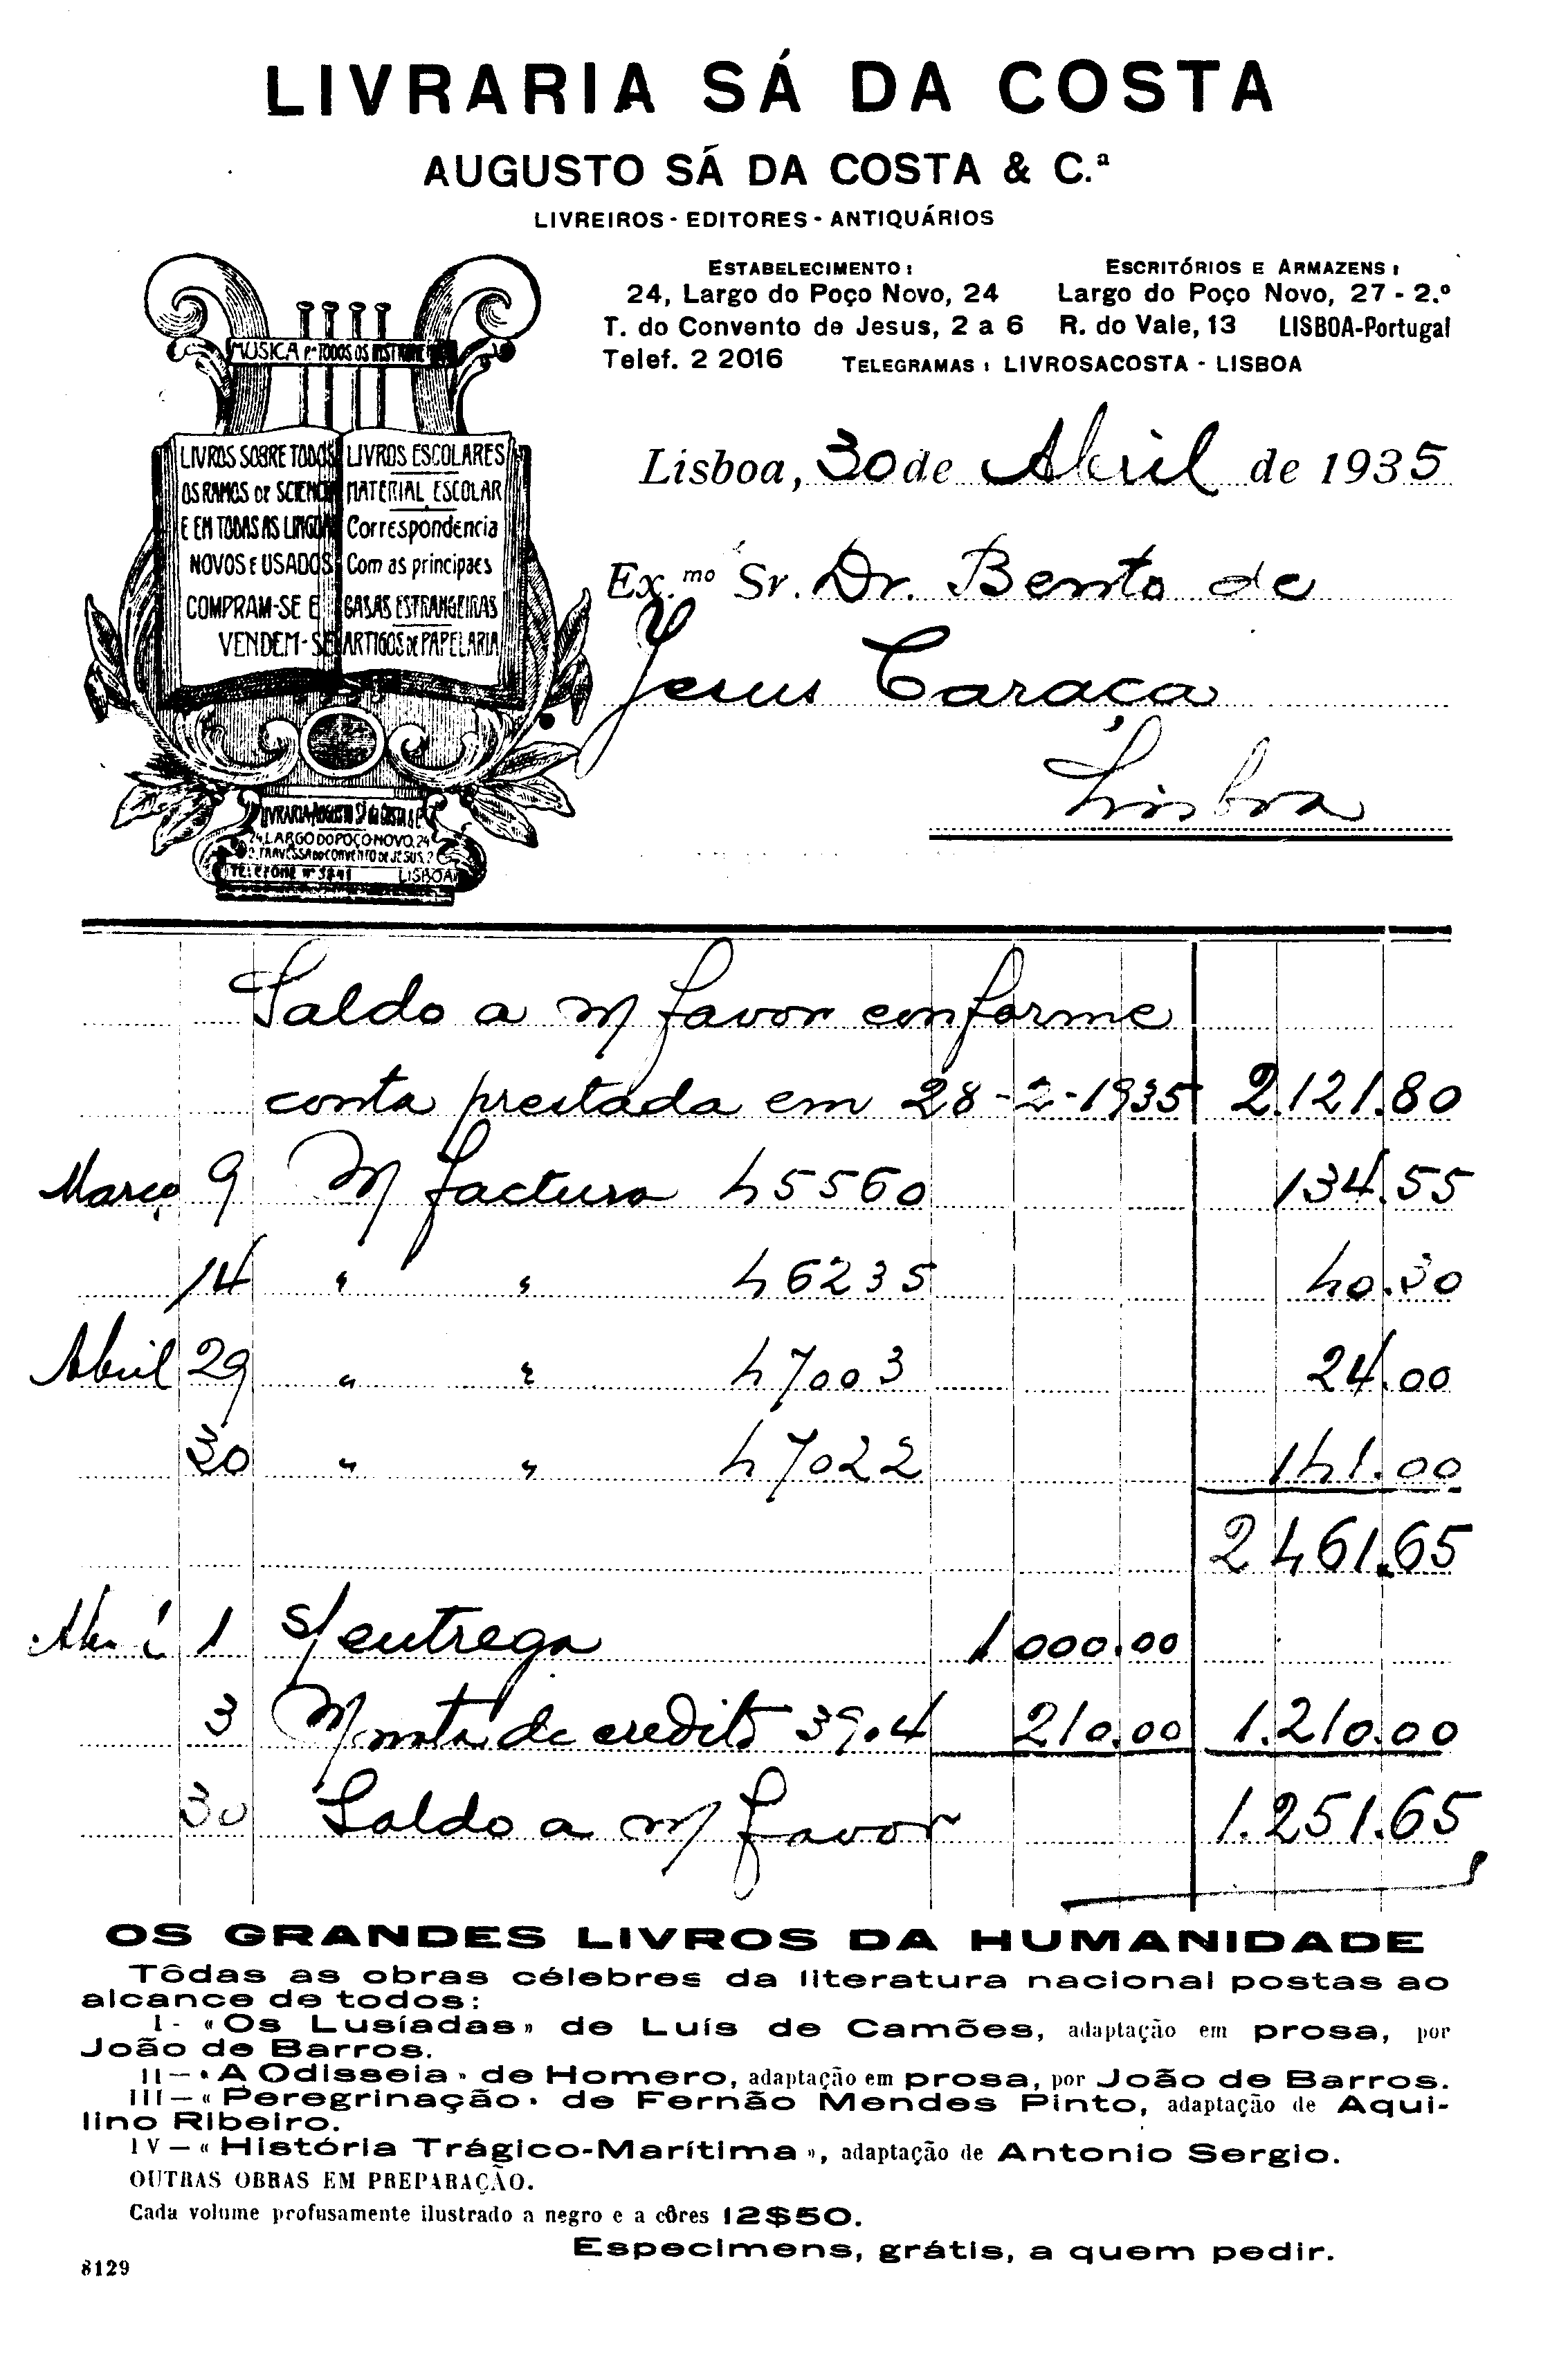 LIVRARIA SÁ DA COSTA
AUGUSTO SÁ DA COSTA & C.ª
LIVREIROS - EDITORES - ANTIQUÁRIOS
ESTABELECIMENTO:
24, Largo do Poço Novo, 24
T. do Convento de Jesus, 2 a 6
Telef. 2 2016
ESCRITÓRIOS E ARMAZENS:
Largo do Poço Novo, 27 - 2.º
R. do Vale, 13 LISBOA-Portugal
TELEGRAMAS: LIVROSACOSTA - LISBOA
MUSICA Pª TODOS OS
LIVROS SOBRE TODOS
OS RAMOS DE SCIENCIA
E EM TODAS AS LINGUAS
NOVOS E USADOS
COMPRAM-SE E
VENDEM-SE
LIVROS ESCOLARES
MATERIAL ESCOLAR
Correspondencia
Com as principaes
CASAS ESTRANGEIRAS
ARTIGOS DE PAPELARIA
LIVRARIA AUGUSTO SÁ DA COSTA
24 LARGO DO POÇO NOVO, 24
2, TRAVESSA DO CONVENTO DE JESUS, 2
TELEFONE Nº LISBOA
Lisboa, 30 de Abril de 1935
Ex.mo Sr. Dr. Bento de
Jesus Caraça
Lisboa
Saldo a m/ favor conforme
conta prestada em 28-2-1935 2.121.80
Março 9 M/ factura 45560 134.55
14 " " 46235 40.30
Abril 29 " " 47003 24.00
30 " " 47022 141.00
2461.65
Abril 1 s/ entrega 1000.00
3 M/ nota de credito 3904 210.00 1.210.00
30 Saldo a m/ favor 1.251.65
OS GRANDES LIVROS DA HUMANIDADE
Tôdas as obras célebres da literatura nacional postas ao
alcance de todos:
I - «Os Lusíadas» de Luís de Camões, adaptação em prosa, por
João de Barros.
II — «A Odisseia» de Homero, adaptação em prosa, por João de Barros.
III — «Peregrinação» de Fernão Mendes Pinto, adaptação de Aqui-
lino Ribeiro.
IV — «História Trágico-Marítima», adaptação de Antonio Sergio.
OUTRAS OBRAS EM PREPARAÇÃO.
Cada volume profusamente ilustrado a negro e a côres 12$50.
Especimens, grátis, a quem pedir.
8129